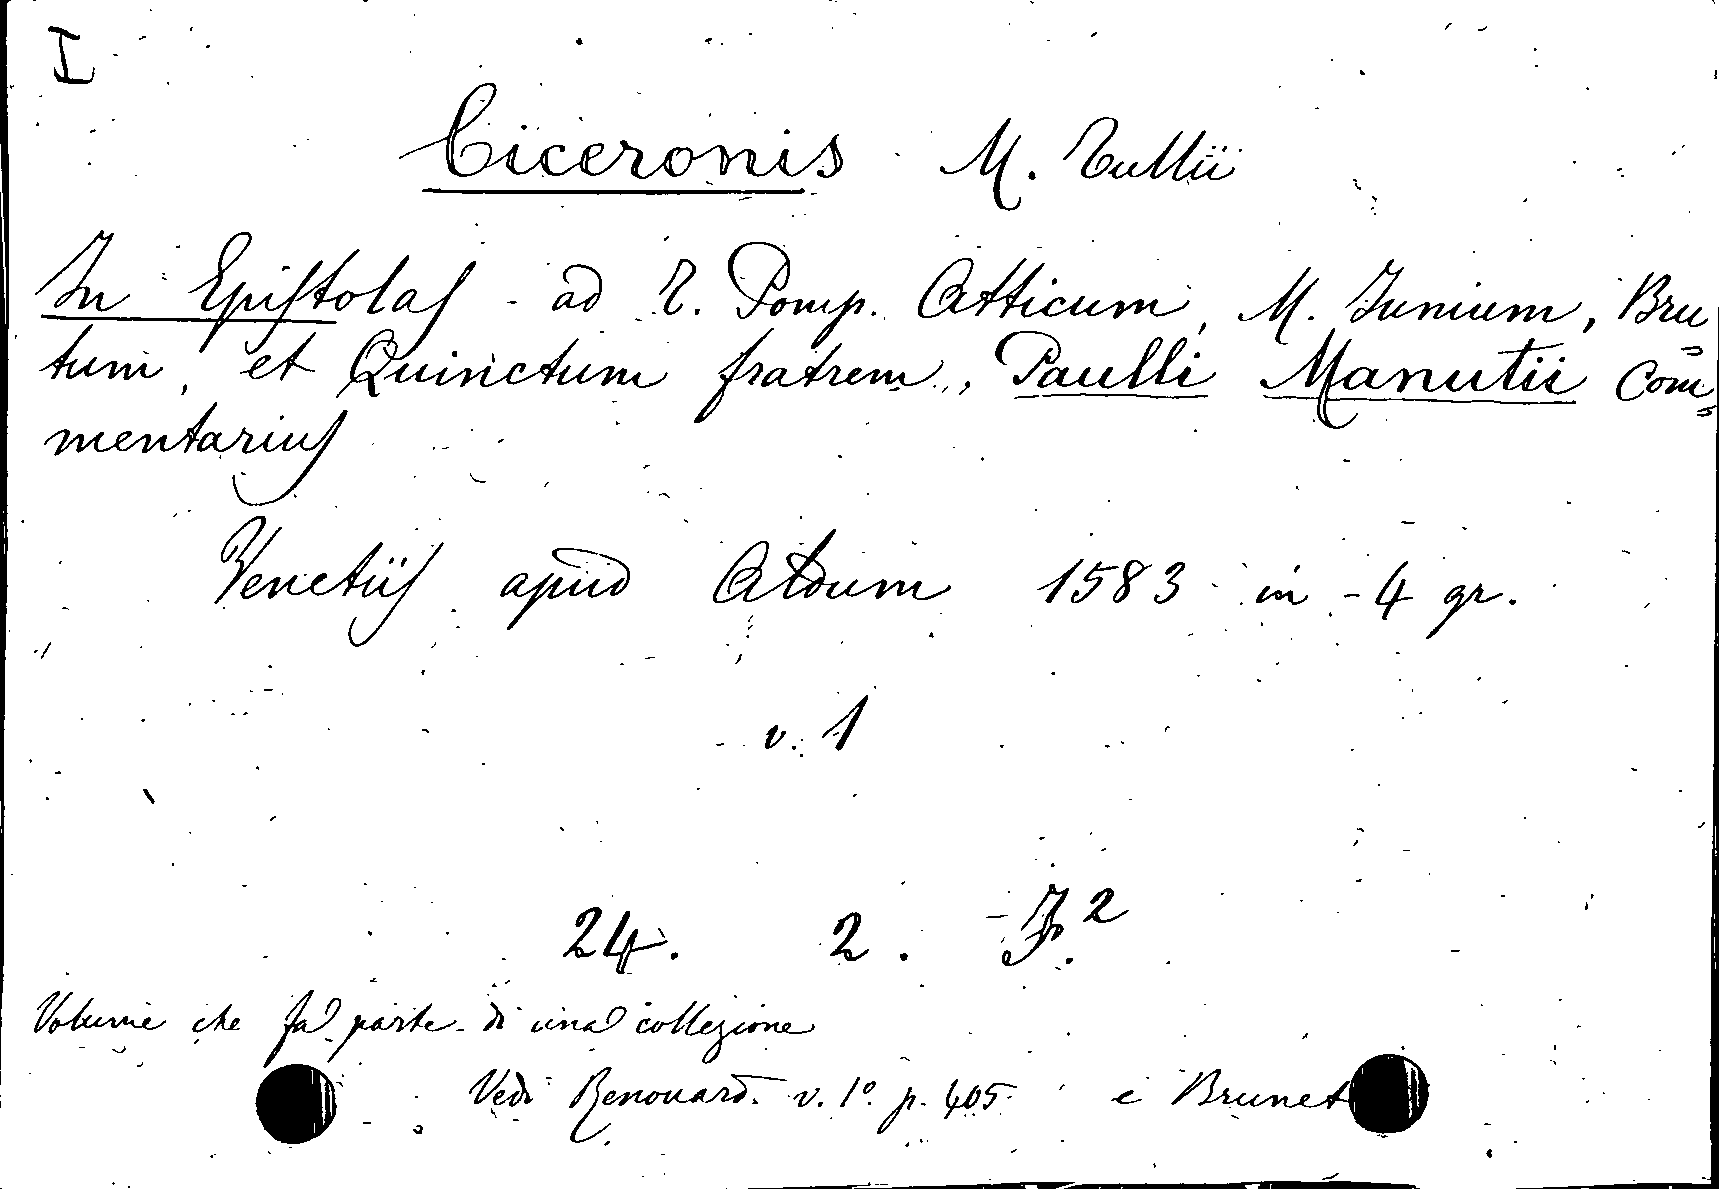 I
Ciceronis M. Tullii
In Epistolas ad T. Pomp. Atticum, M. Junium, Bru
tum, et Quinctum fratrem, Paulli Manutii Com=
mentarius
Venetiis apud Aldum 1583 in-4 gr.
v. 1
24. 2. F.2
Volume che fa parte di una collezione
Vedi Renouard. v. 1º. p. 405 e Brunet